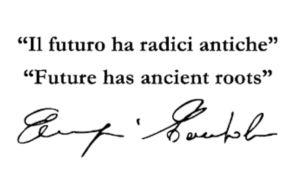 “Il futuro ha radici antiche”
“Future has ancient roots”